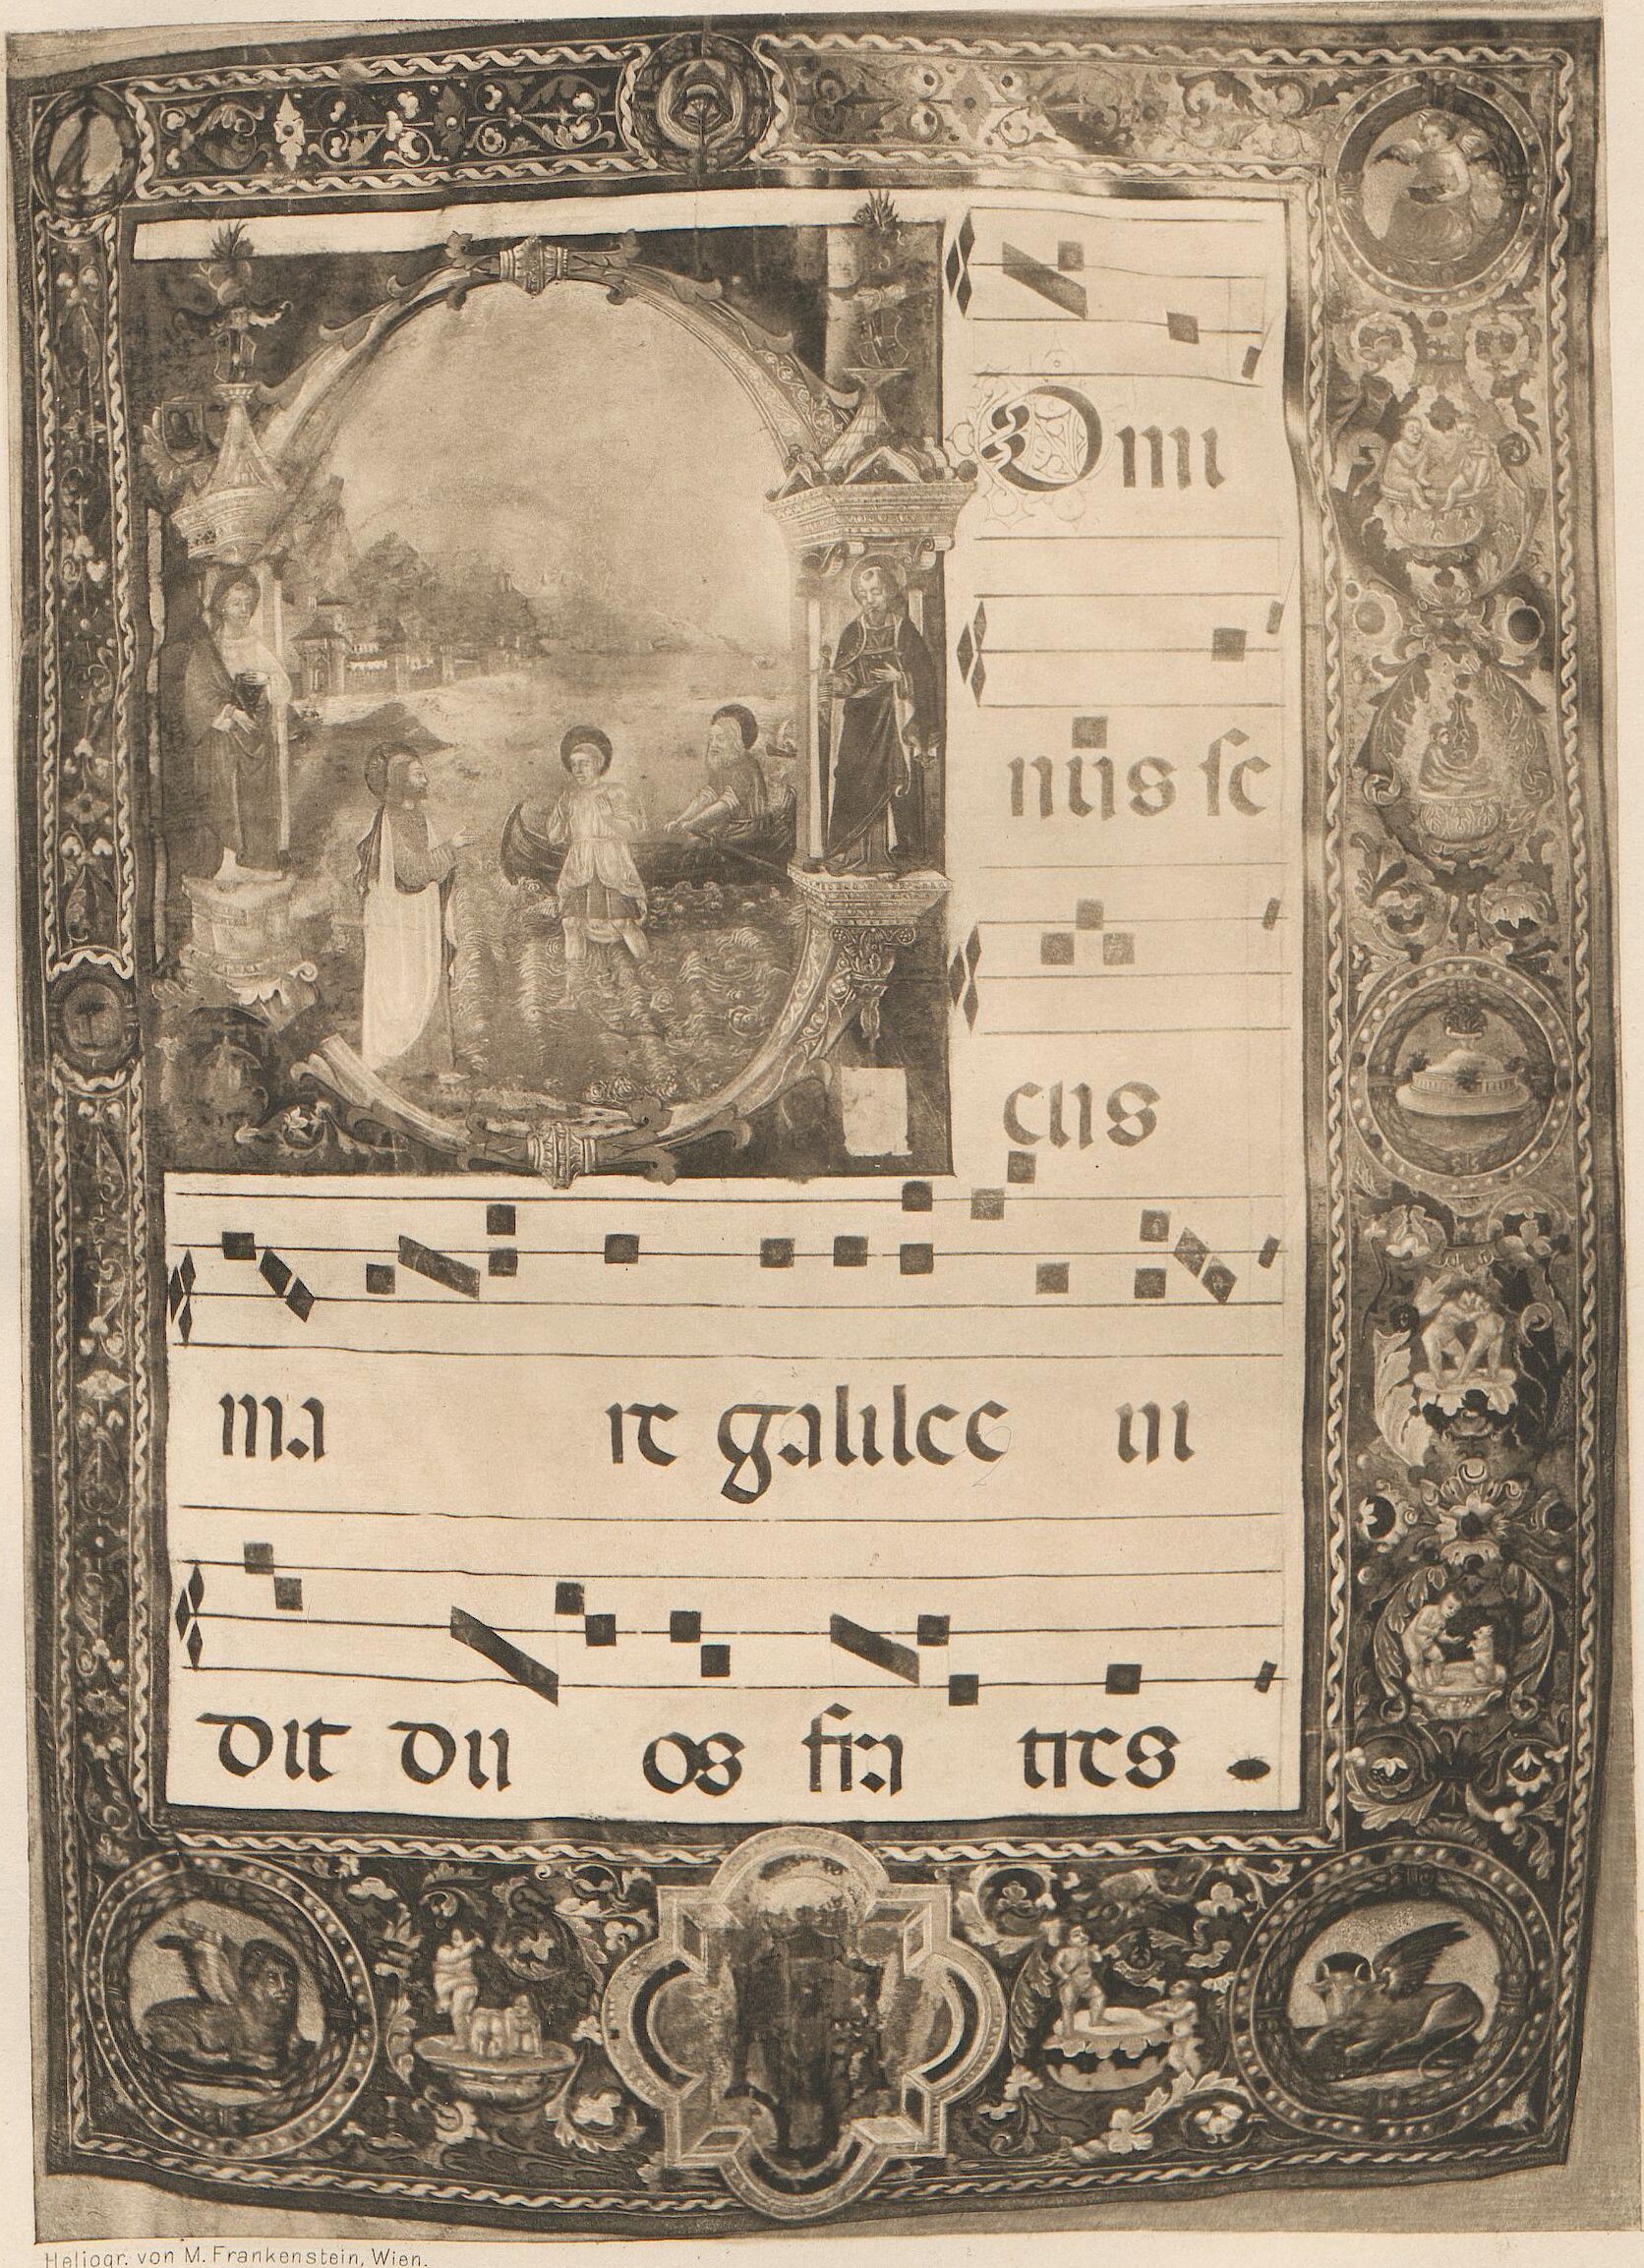 Domi
nus se
cus
ma re galilee vi
dit du os fra tres .
Heliogr. von M. Frankenstein, Wien.